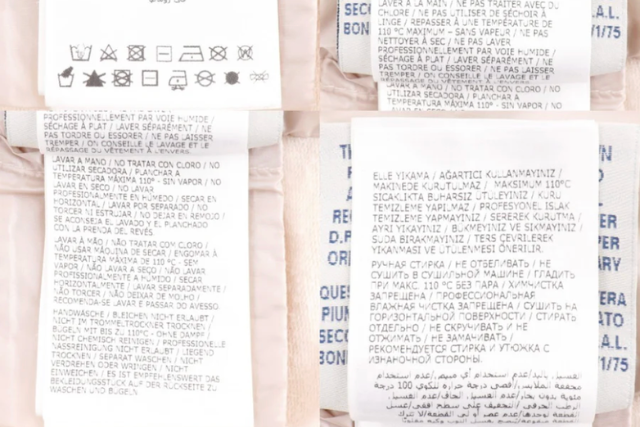 A LA MAIN / NE PAS TRAITER AVEC DU
CHLORE / NE PAS UTILISER DE SÉCHOIR À
LINGE / REPASSER À UNE TEMPÉRATURE DE
110 °C MAXIMUM – SANS VAPEUR / NE PAS
NETTOYER À SEC / NE PAS LAVER
PROFESSIONNELLEMENT PAR VOIE HUMIDE /
SÉCHAGE À PLAT / LAVER SÉPARÉMENT / NE
PAS TORDRE OU ESSORER / NE PAS LAISSER
TREMPER / ON CONSEILLE LE LAVAGE ET LE
REPASSAGE DU VÊTEMENT À L'ENVERS.
LAVAR A MANO / NO TRATAR CON CLORO / NO
UTILIZAR SECADORA / PLANCHAR A
TEMPERATURA MÁXIMA 110° - SIN VAPOR / NO
SEC
BON
A.L.
1/75
PROFESSIONNELLEMENT PAR VOIE HUMIDE /
SÉCHAGE À PLAT / LAVER SÉPARÉMENT / NE
PAS TORDRE OU ESSORER / NE PAS LAISSER
TREMPER / ON CONSEILLE LE LAVAGE ET LE
REPASSAGE DU VÊTEMENT À L'ENVERS.
LAVAR A MANO / NO TRATAR CON CLORO / NO
UTILIZAR SECADORA / PLANCHAR A
TEMPERATURA MÁXIMA 110° - SIN VAPOR / NO
LAVAR EN SECO / NO LAVAR
PROFESIONALMENTE EN HÚMEDO / SECAR EN
HORIZONTAL / LAVAR POR SEPARADO / NO
TORCER NI ESTRUJAR / NO DEJAR EN REMOJO /
SE ACONSEJA EL LAVADO Y EL PLANCHADO
CON LA PRENDA DEL REVÉS.
LAVAR À MÃO / NÃO TRATAR COM CLORO /
NÃO USAR MÁQUINA DE SECAR / ENGOMAR À
TEMPERATURA MÁXIMA DE 110 °C - SEM
VAPOR / NÃO LAVAR A SECO / NÃO LAVAR
PROFISSIONALMENTE A HÚMIDO / SECAR
HORIZONTALMENTE / LAVAR SEPARADAMENTE
/ NÃO TORCER / NÃO DEIXAR DE MOLHO /
RECOMENDA-SE LAVAR E PASSAR DO AVESSO.
HANDWÄSCHE / BLEICHEN NICHT ERLAUBT /
NICHT IM TROMMELTROCKNER TROCKNEN /
BÜGELN MIT BIS ZU 110°C - OHNE DAMPF /
NICHT CHEMISCH REINIGEN / PROFESSIONELLE
NASSREINIGUNG NICHT ERLAUBT / LIEGEND
TROCKNEN / SEPARAT WASCHEN / NICHT
VERDREHEN ODER WRINGEN / NICHT
EINWEICHEN / ES IST EMPFEHLENSWERT DAS
BEKLEIDUNGSSTÜCK AUF DER RÜCKSEITE ZU
WASCHEN UND BÜGELN
ELLE YIKAMA / AĞARTICI KULLANMAYINIZ /
MAKINEDE KURUTULMAZ / MAKSIMUM 110°C
SICAKLIKTA BUHARSIZ ÜTÜLEYINIZ / KURU
TEMIZLEME YAPILMAZ / PROFESYONEL ISLAK
TEMIZLEME YAPMAYINIZ / SEREREK KURUTMA /
AYRI YIKAYINIZ / BÜKMEYINIZ VE SIKMAYINIZ /
SUDA BIRAKMAYINIZ / TERS ÇEVRILEREK
YIKANMASI VE ÜTÜLENMESI ÖNERILIR.
РУЧНАЯ СТИРКА / НЕ ОТБЕЛИВАТЬ / НЕ
СУШИТЬ В СУШИЛЬНОЙ МАШИНЕ / ГЛАДИТЬ
ПРИ МАКС. 110 °C БЕЗ ПАРА / ХИМЧИСТКА
ЗАПРЕЩЕНА / ПРОФЕССИОНАЛЬНАЯ
ВЛАЖНАЯ ЧИСТКА ЗАПРЕЩЕНА / СУШИТЬ НА
ГОРИЗОНТАЛЬНОЙ ПОВЕРХНОСТИ / СТИРАТЬ
ОТДЕЛЬНО / НЕ СКРУЧИВАТЬ И НЕ
ОТЖИМАТЬ / НЕ ЗАМАЧИВАТЬ /
РЕКОМЕНДУЕТСЯ СТИРКА И УТЮЖКА С
ИЗНАНОЧНОЙ СТОРОНЫ.
TH
WN
RE
D.P
ORI
ARY
QUES
ERA
PIUM
ATO
SECO
A.L.
BONI
1/75